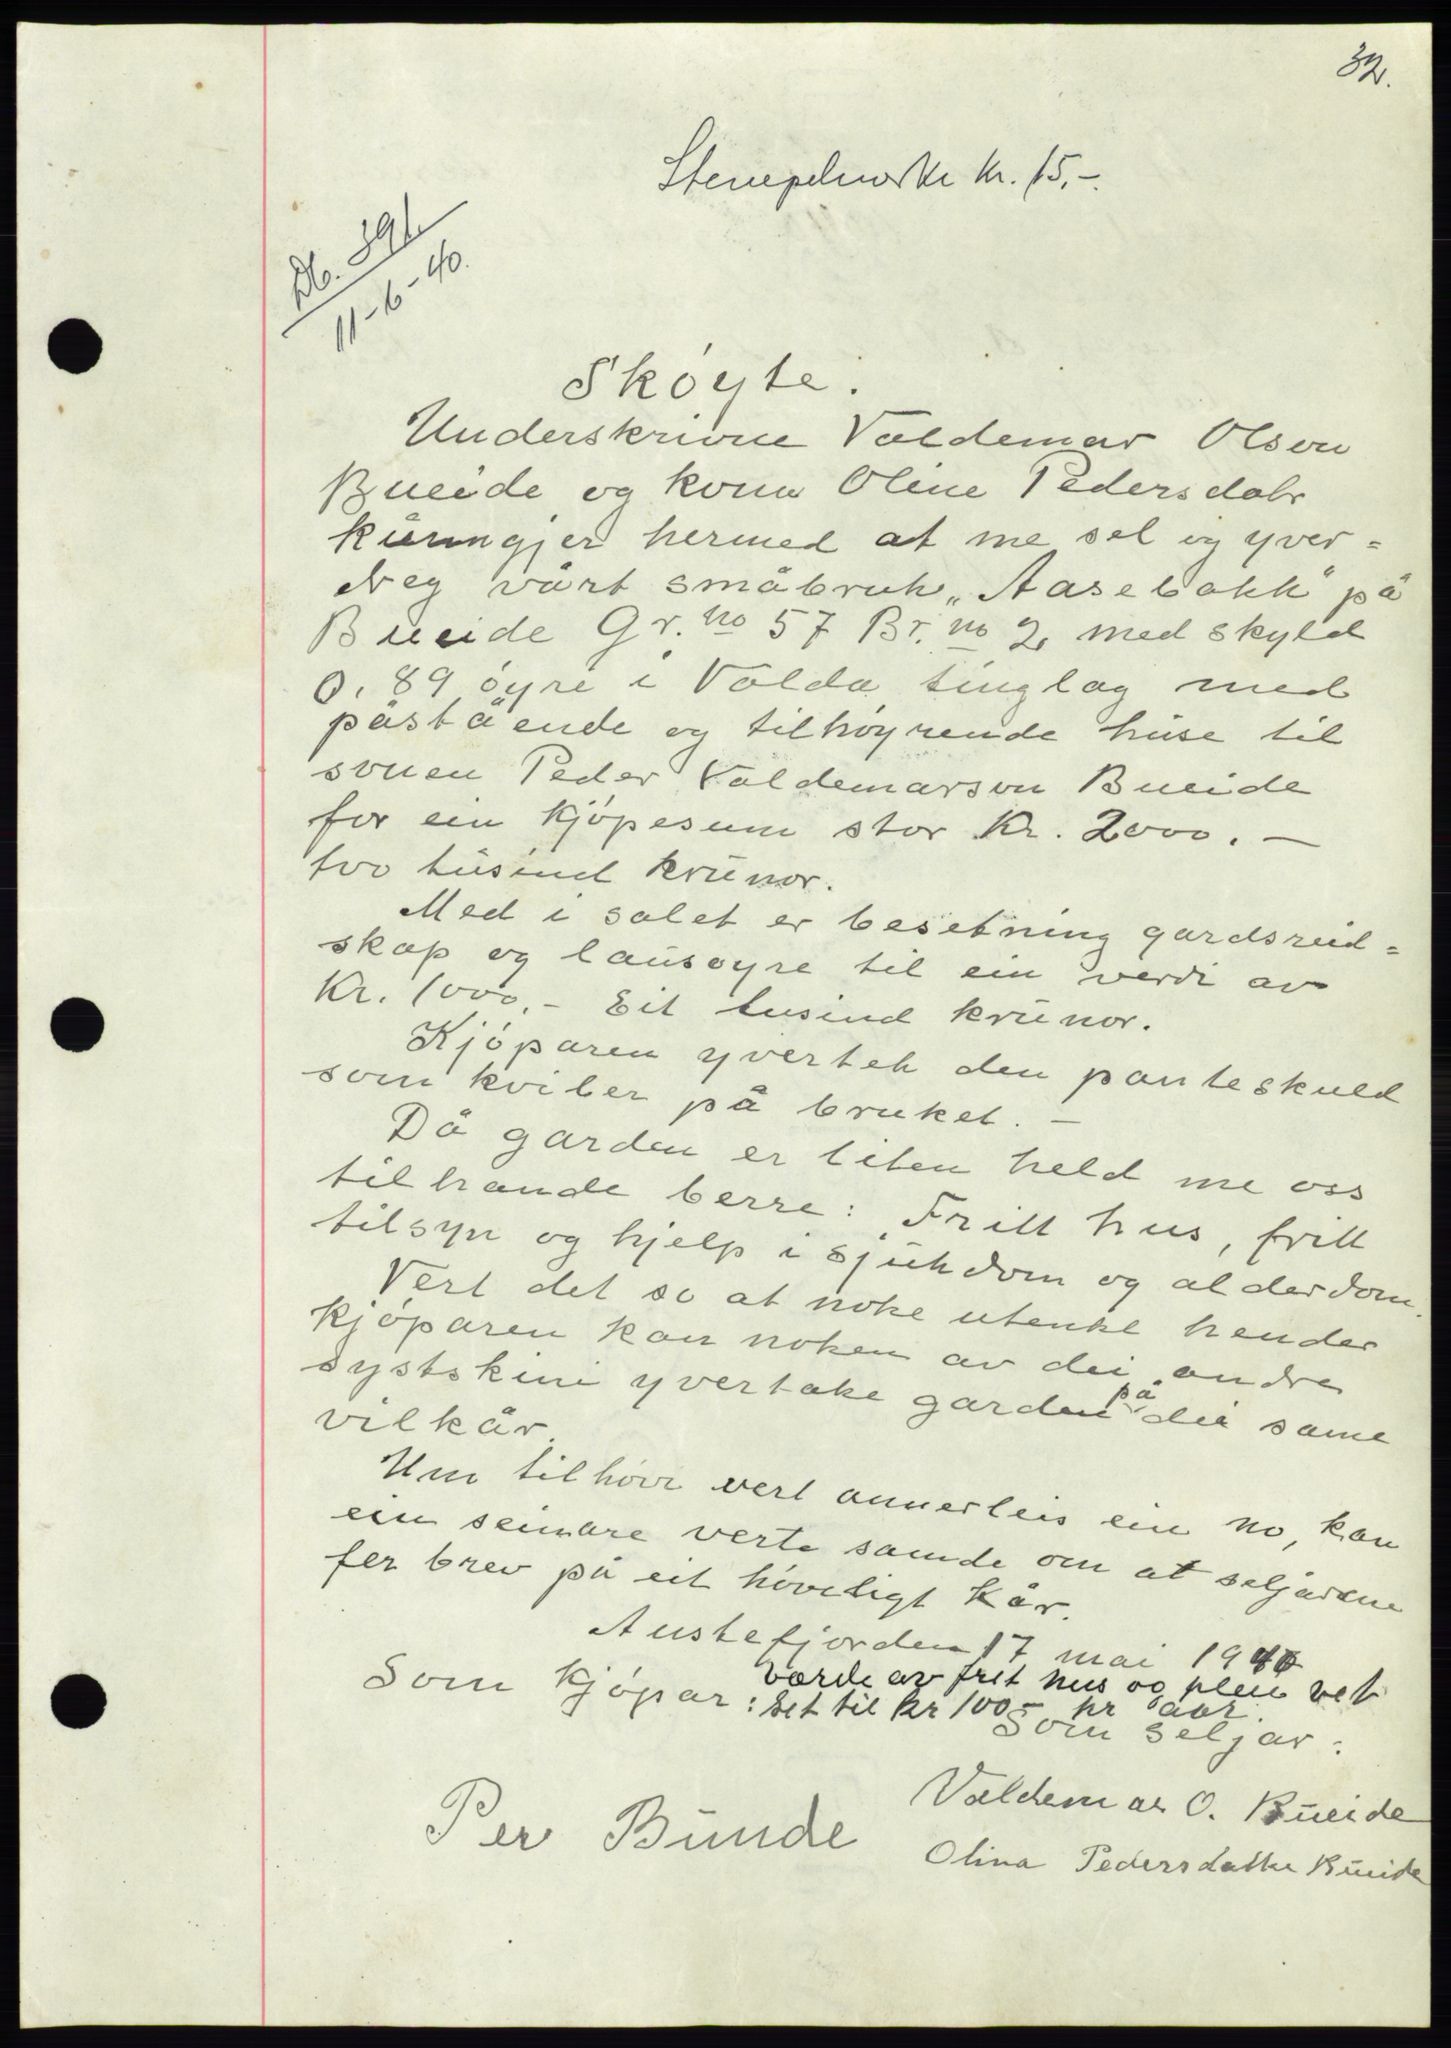 32.
Stempelmerke kr. 15,-.
Db. 891
11-6-40.
Skóyte.
Underskrivne Valdemar Olson
Bueide og kona Oline Pedersdotr
kunngjer hermed at me sel og yver=
dreg vårt småbruk "Aasebakk" på
Bueide Gr. no 57 Br. no 2 med skyld
0,89 óyre i Volda tinglag med
påstående og tilhóyrende huse til
sonen Peder Valdemarson Bueide
for ein kjópesum stor Kr. 2000.-
tvo tusind krunor.
Med i salet er besetning gardsreid=
skap og lausoyre til ein verdi av
Kr. 1000.- Eit tusind krunor.
Kjóparen yvertek den panteskuld
som kviler på bruket. -
Då garden er liten held me oss
tilhande berre: Fritt hus, fritt
tilsyn og hjelp i sjukdom og alderdom.
Vert det so at noke utenke hender
kjóparen kan noken av dei andre
systskini yvertake garden på dei same
vilkår.
Um tilhóve vert annerleis ein no, kan
ein seinare verte samde om at seljarane
fer brev på eit hóveligt kår.
Austefjorden 17 mai 1940
værde av frit hus og pleie vet
Som kjópar: set til kr 100- pr aar.
Som seljar:
Valdemar O. Bueide
Per Bunde
Olina Pedersdatter Bueide